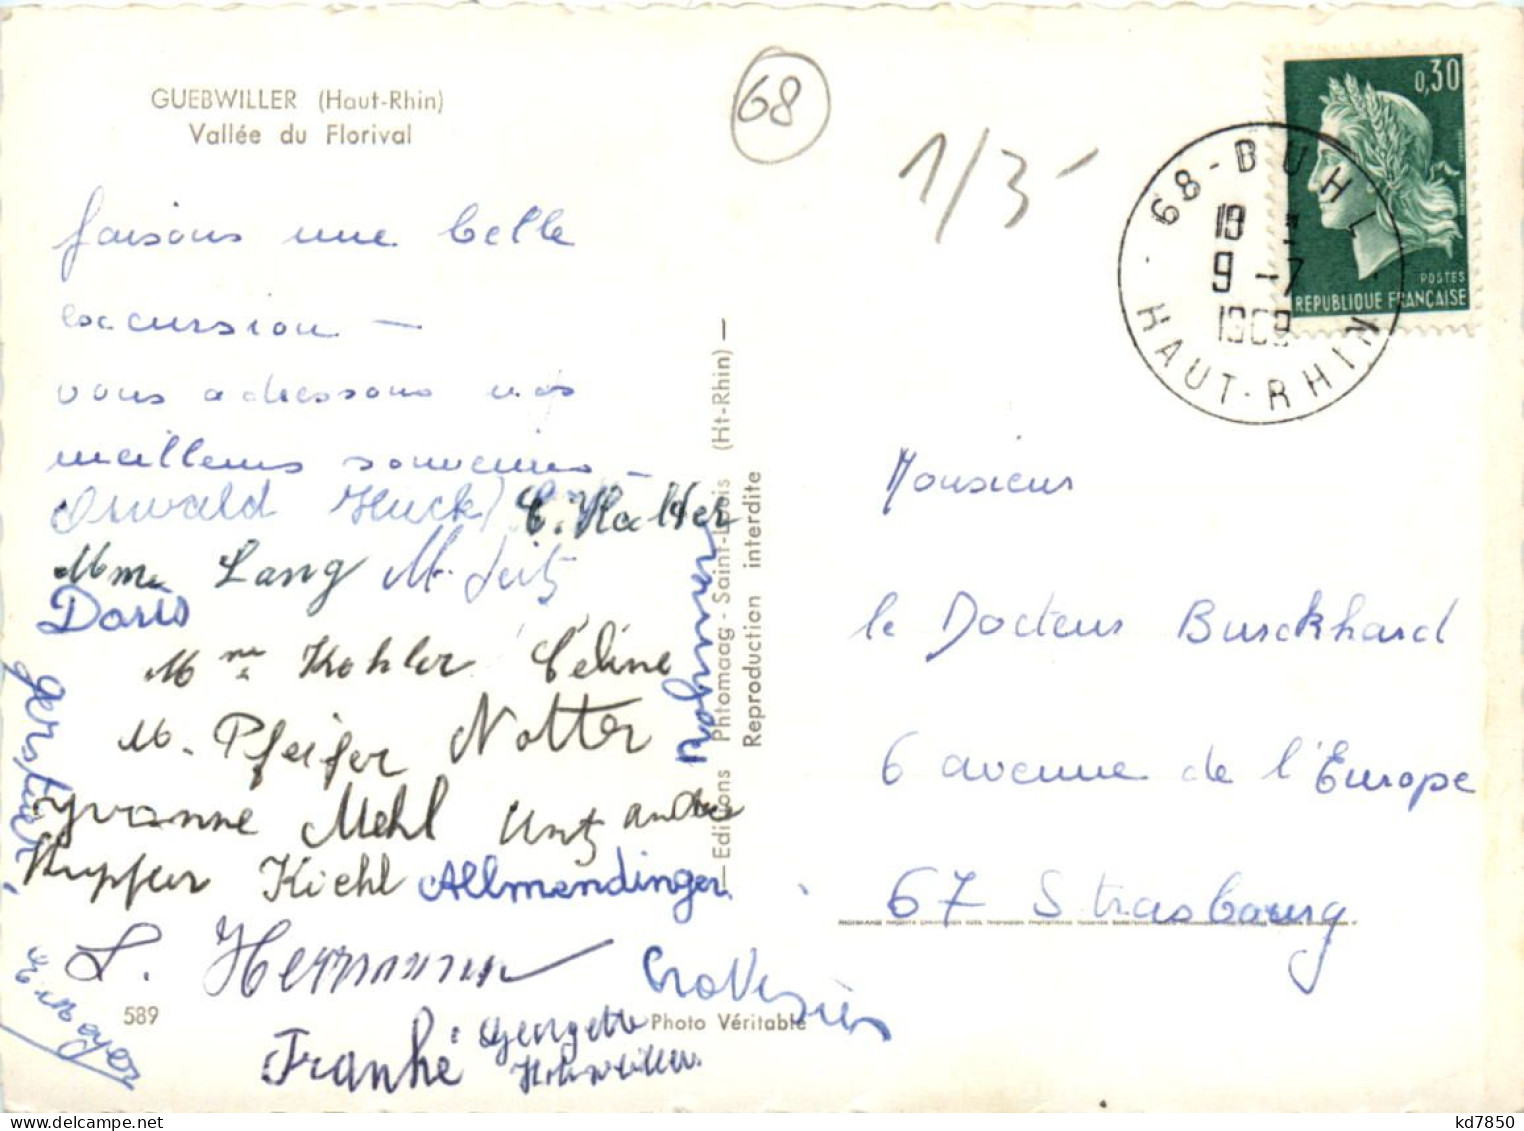 GUEBWILLER (Haut-Rhin)
Vallée du Florival
68
1/3
0,30
POSTES
REPUBLIQUE FRANÇAISE
68 - BUHL
9 - 7
HAUT-RHIN
faisons une belle
excursion —
vous adressons nos
meilleurs souvenirs —
Oswald Huck E. Halter
Mme Lang M.
Doris
Mme Kohler Céline
M. Pfeifer Notter
Yvonne Mehl Untz
Kupfer Kiehl Allmendinger
L. Herrmann
Franké Georgette
Gerstner
589
Editions Phtomaag - Saint-Louis (Ht-Rhin) —
Reproduction interdite
Photo Véritable
Monsieur
le Docteur Burckhard
6 avenue de l'Europe
67 Strasbourg
kd7850